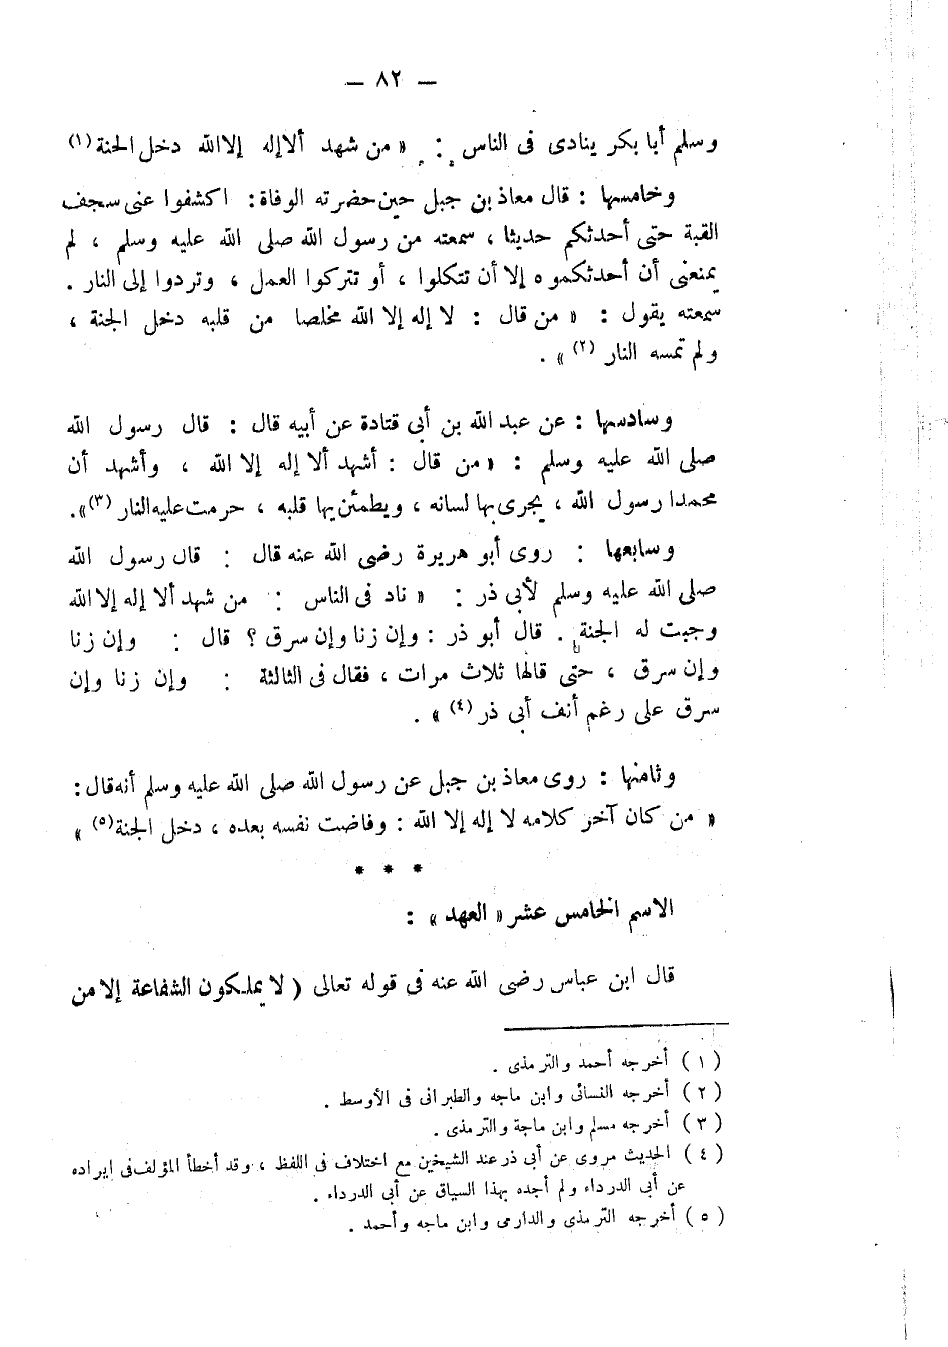 — ٨٢ —
وسلم أبا بكر ينادى فى الناس : « من شهد ألا إله إلا الله دخل الجنة (١)
وخامسها : قال معاذ بن جبل حين حضرته الوفاة : اكشفوا عنى سجف
القبة حتى أحدثكم حديثا ، سمعته من رسول الله صلى الله عليه وسلم ، لم
يمنعنى أن أحدثكموه إلا أن تتكلوا ، أو تتركوا العمل ، وتردوا إلى النار .
سمعته يقول : « من قال : لا إله إلا الله مخلصا من قلبه دخل الجنة ،
ولم تمسه النار (٢) » .
وسادسها : عن عبد الله بن أبى قتادة عن أبيه قال : قال رسول الله
صلى الله عليه وسلم : « من قال : أشهد ألا إله إلا الله ، وأشهد أن
محمدا رسول الله ، يجرى بها لسانه ، ويطمئن بها قلبه ، حرمت عليه النار (٣) » .
وسابعها : روى أبو هريرة رضى الله عنه قال : قال رسول الله
صلى الله عليه وسلم لأبى ذر : « ناد فى الناس : من شهد ألا إله إلا الله
وجبت له الجنة . قال أبو ذر : وإن زنا وإن سرق ؟ قال : وإن زنا
وإن سرق ، حتى قالها ثلاث مرات ، فقال فى الثالثة : وإن زنا وإن
سرق على رغم أنف أبى ذر (٤) » .
وثامنها : روى معاذ بن جبل عن رسول الله صلى الله عليه وسلم أنه قال :
« من كان آخر كلامه لا إله إلا الله : وفاضت نفسه بعده ، دخل الجنة (٥) »
* * *
الاسم الخامس عشر « العهد » :
قال ابن عباس رضى الله عنه فى قوله تعالى ( لا يملكون الشفاعة إلا من
( ١ ) أخرجه أحمد والترمذى .
( ٢ ) أخرجه النسائى وابن ماجه والطبرانى فى الأوسط .
( ٣ ) أخرجه مسلم وابن ماجة والترمذى .
( ٤ ) الحديث مروى عن أبى ذر عند الشيخين مع اختلاف فى اللفظ ، وقد أخطأ المؤلف فى ايراده
عن أبى الدرداء ولم أجده بهذا السياق عن أبى الدرداء .
( ٥ ) أخرجه الترمذى والدارمى وابن ماجه وأحمد .